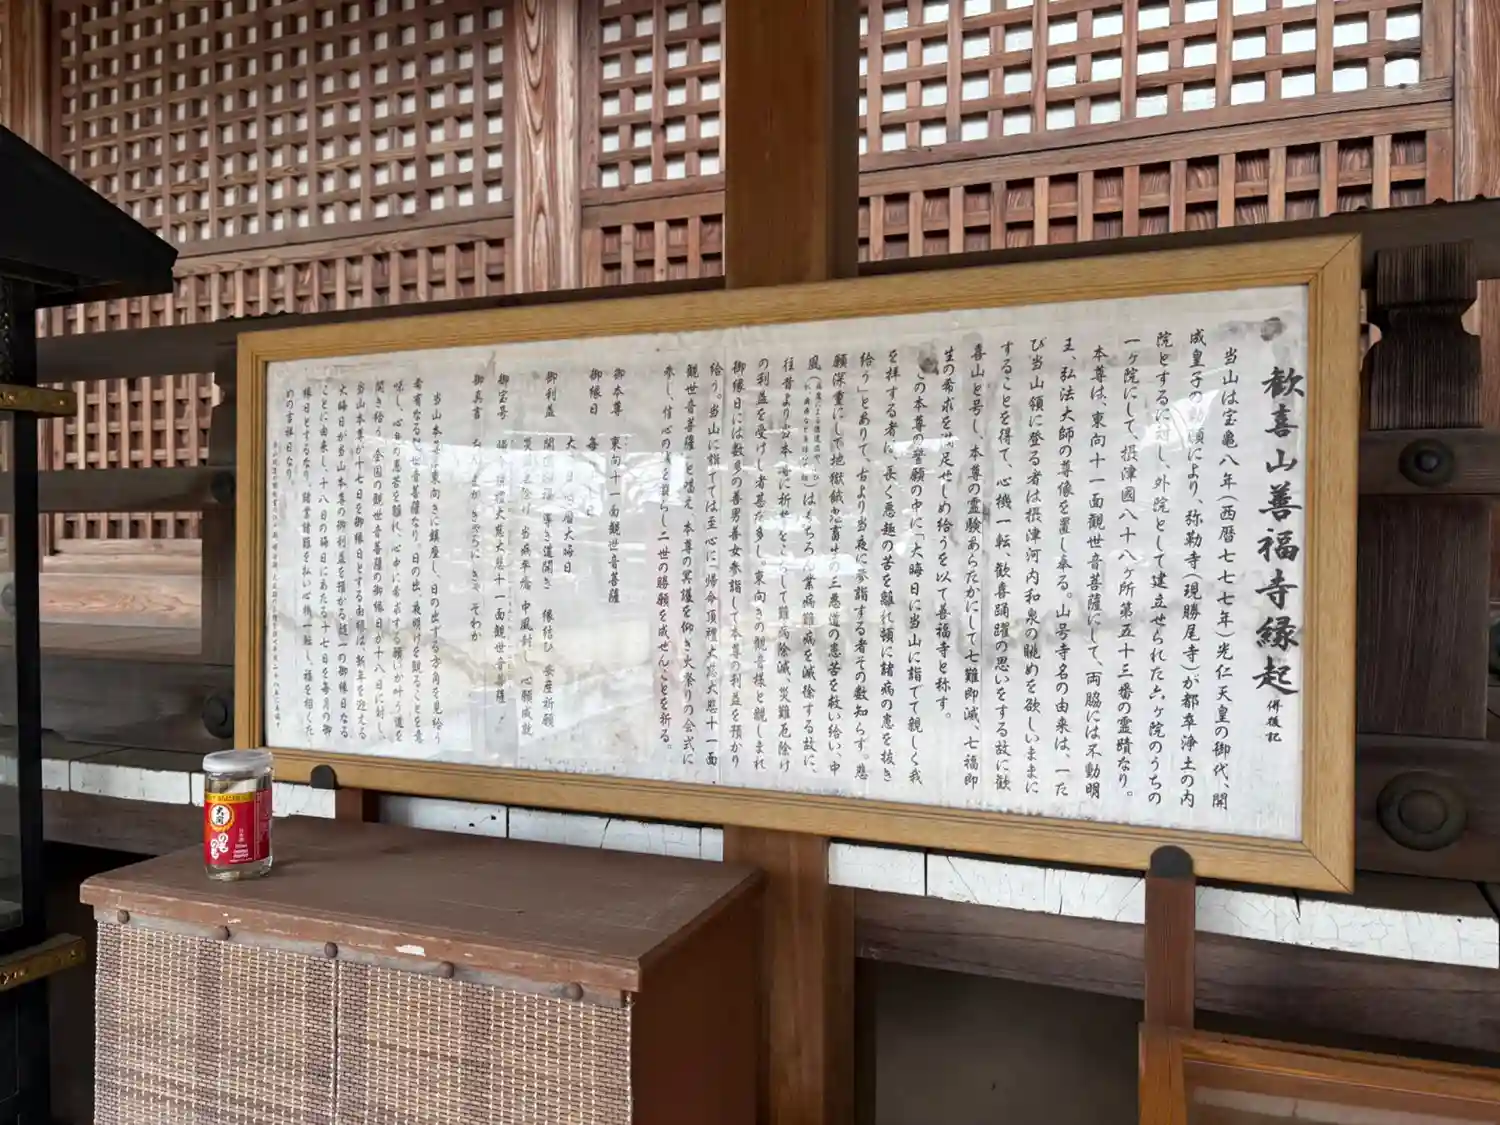 歓喜山善福寺縁起 併後記
当山は宝亀八年(西暦七七七年)光仁天皇の御代、開
成皇子の勅願により、弥勒寺(現勝尾寺)が都率浄土の内
院とするに対し、外院として建立せられた六ヶ院のうちの
一ヶ院にして、摂津國八十八ヶ所第五十三番の霊蹟なり。
本尊は、東向十一面観世音菩薩にして、両脇には不動明
王、弘法大師の尊像を置し奉る。山号寺名の由来は、一た
び当山領に登る者は摂津河内和泉の眺めを欲しいままに
することを得て、心機一転、歓喜踊躍の思いをする故に歓
喜山と号し、本尊の霊験あらたかにして七難即滅、七福即
生の希求を満足せしめ給うを以て善福寺と称す。
この本尊の誓願の中に「大晦日に当山に詣でて親しく我
を拝する者に、長く悪趣の苦を離れ頓に諸病の恚を抜き
給う」とありて、古より当夜に参詣する者その数知らず。悲
願深重にして地獄餓鬼畜生の三悪道の恚苦を救い給い、中
風はもちろん業病難病を滅除する故に、
往昔より当本尊に祈誓をこらして難病除滅、災難厄除け
の利益を受けし者甚だ多し。東向きの観音様と親しまれ
御縁日には数多の善男善女参詣して本尊の利益を預かり
給う。当山に詣でては至心に「帰命頂禮大慈大悲十一面
観世音菩薩」と唱え、本尊の冥護を仰ぎ大祭りの会式に
参し、信心の誠を凝らし二世の勝願を成ぜんことを祈る。
御本尊 東向十一面観世音菩薩
御縁日 毎
大晦日
御利益 開 導き道開き 縁結び 安産祈願
災 除け 当病平癒 中風封じ 心願成就
御宝号 帰命頂禮大慈大悲十一面観世音菩薩
御真言 おん まか きゃろにきゃ そわか
当山本尊は東向きに鎮座し、日の出する方角を見給う
希有なる観世音菩薩なり。日の出、夜明けを観ることを意
味し、心目の恚苦を離れ、心中に希求する願いが叶う道を
開き給う。全国の観世音菩薩の御縁日が十八日に対し、
当山本尊が十七日を御縁日とする由縁は、新年を迎える
大晦日が当山本尊の御利益を預かる随一の御縁日なる
ことに由来し、十八日の晦日にあたる十七日を毎月の御
縁日とするなり。諸業諸難を払い心機一転し、福を招くた
めの吉祥日なり。
大関
のものも